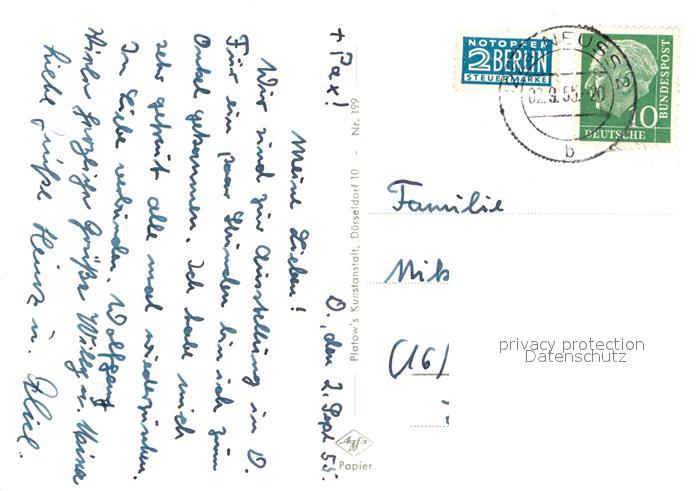 + Pax!
D., den 2. Sept. 55.
Meine Lieben!
Wir sind zur Ausstellung in D.
Für ein paar Stunden bin ich zum
Onkel gekommen. Ich habe mich
sehr gefreut alle mal wiederzusehen.
In Liebe verbunden. Wolfgang
Viele herzliche Grüße Willy u. Maria
Liebe Grüße Heinz u.
Platow's Kunstanstalt, Düsseldorf 10 – Nr. 199
Agfa
Papier
NOTOPFER
2 BERLIN
STEUERMARKE
NEUSS 2
02.9.55.-20
b
10
DEUTSCHE
BUNDESPOST
Familie
Mik
(16)
privacy protection
Datenschutz